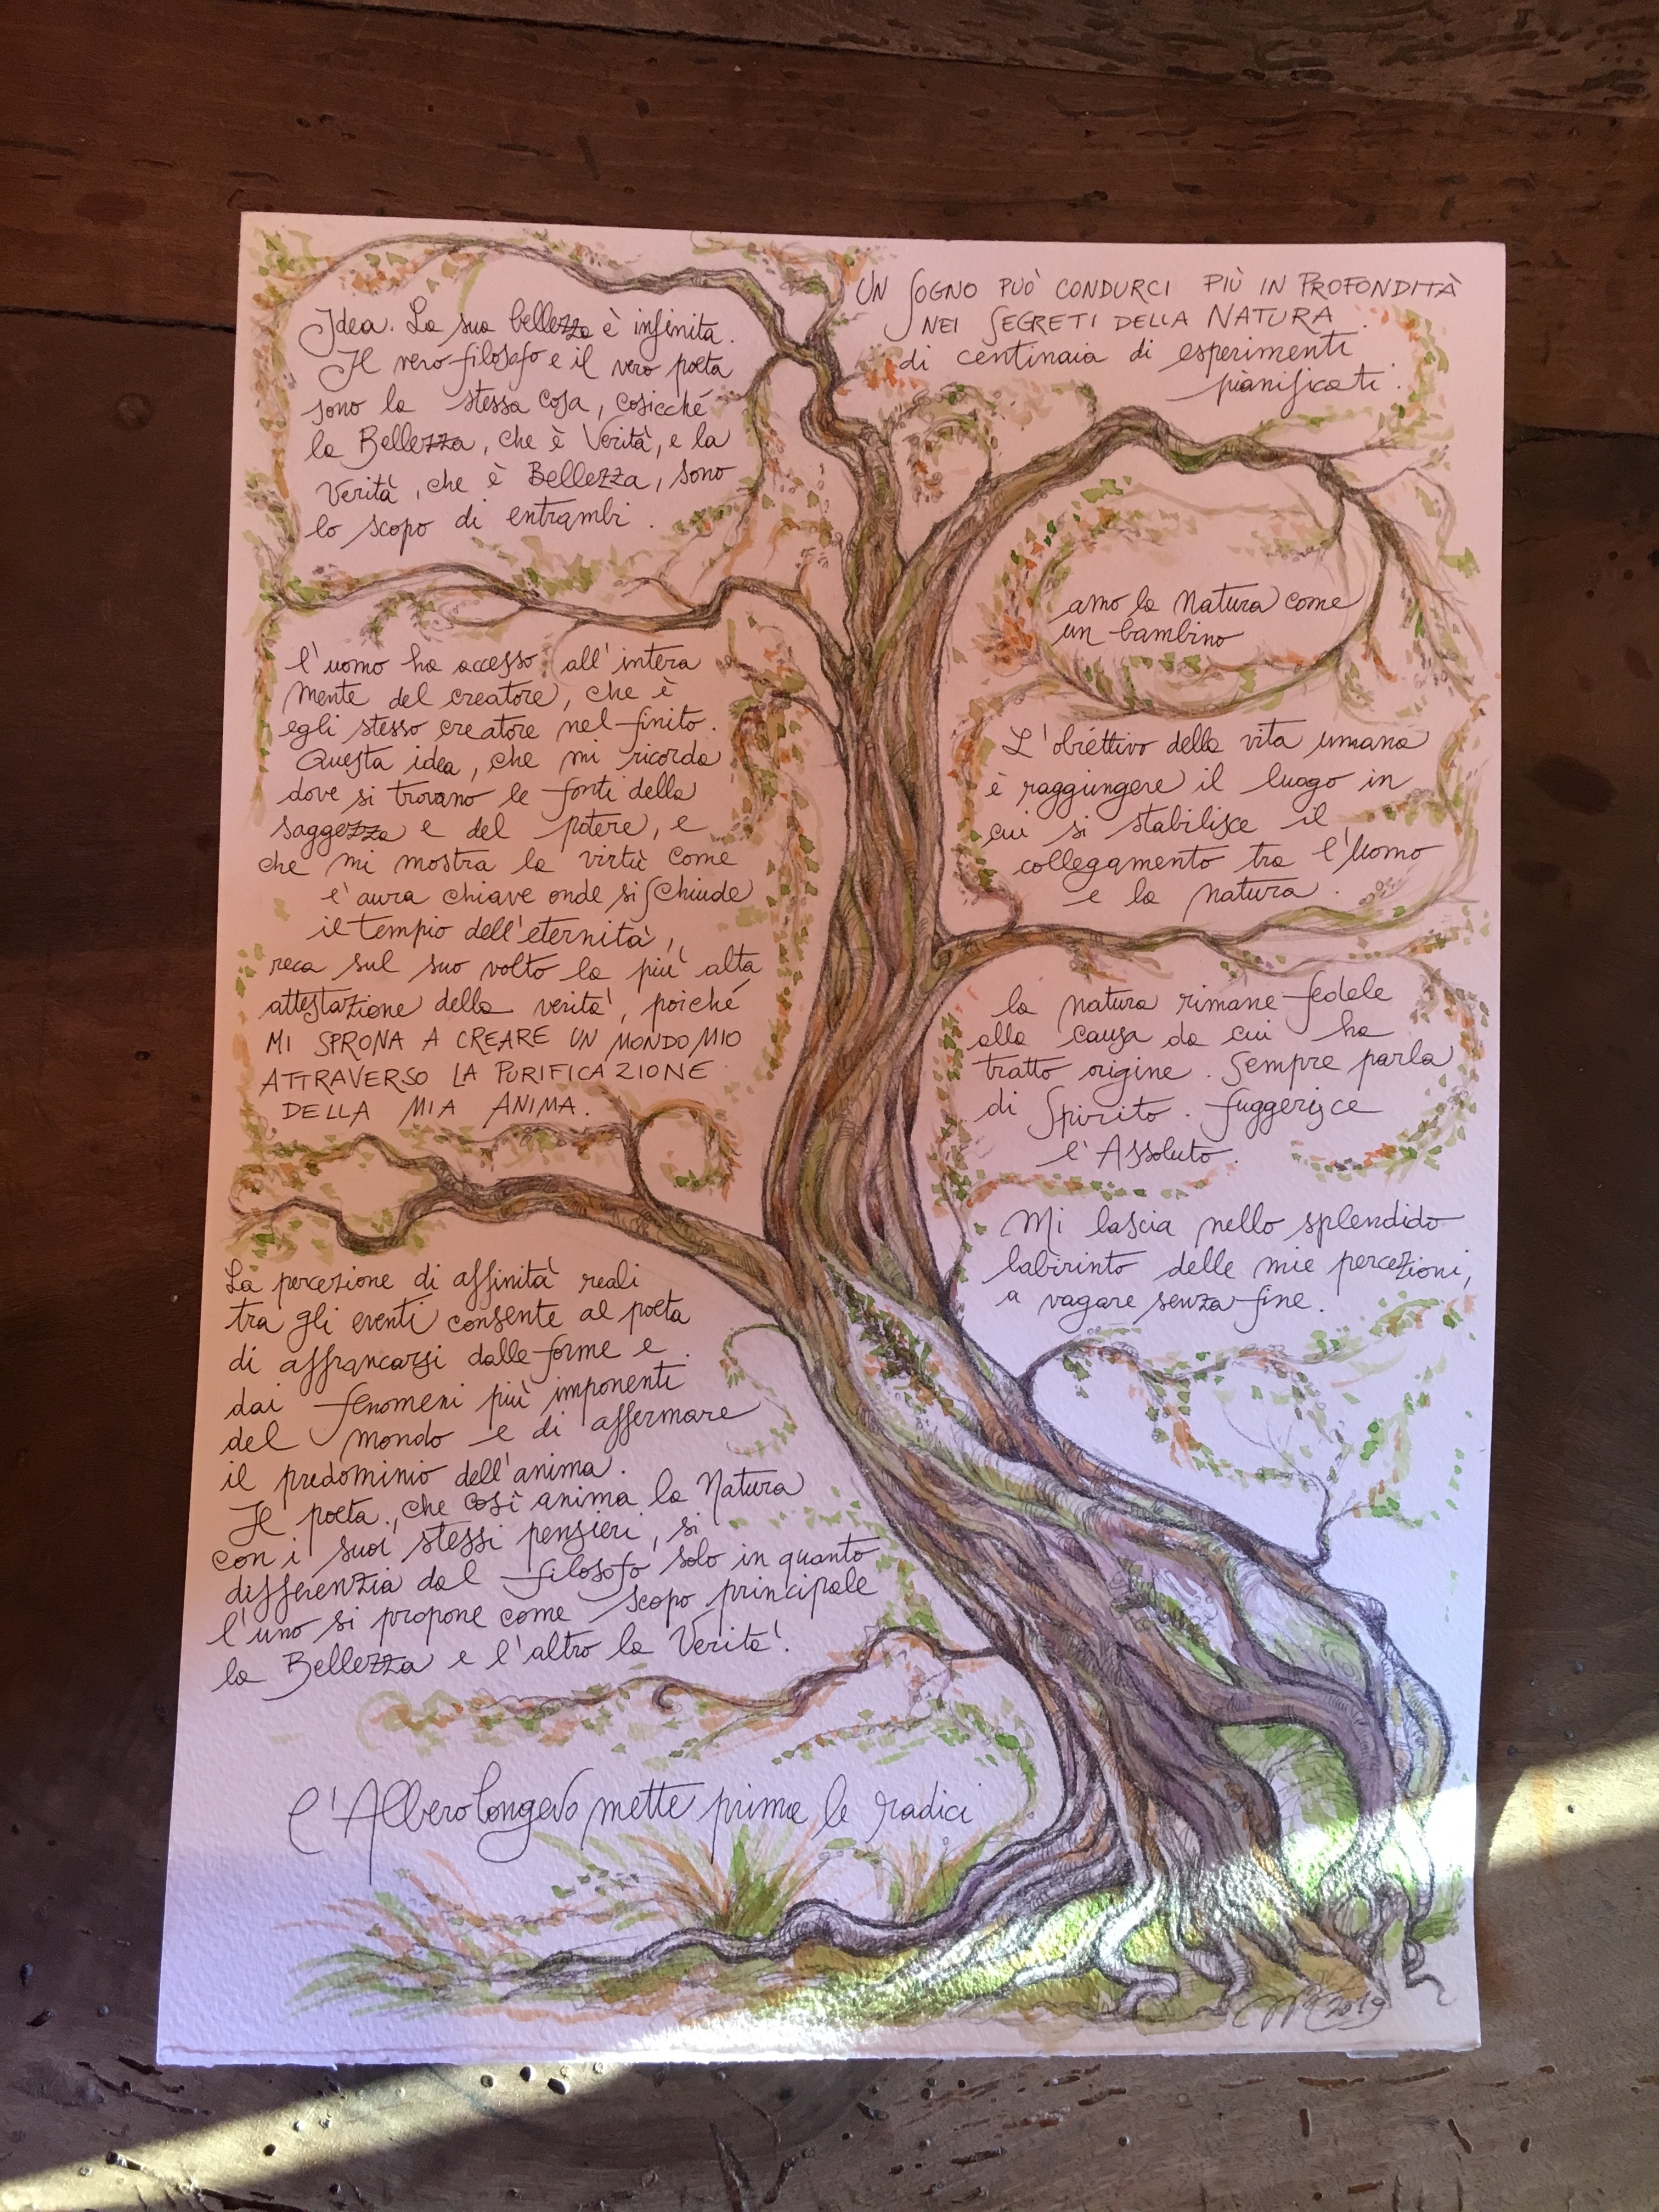 Idea. La sua bellezza è infinita.
Il vero filosofo e il vero poeta
sono la stessa cosa, cosicché
la Bellezza, che è Verità, e la
Verità, che è Bellezza, sono
lo scopo di entrambi.
UN SOGNO PUÒ CONDURCI PIÙ IN PROFONDITÀ
NEI SEGRETI DELLA NATURA
di centinaia di esperimenti
pianificati.
amo la Natura come
un bambino
l'uomo ha accesso all'intera
mente del creatore, che è
egli stesso creatore nel finito.
Questa idea, che mi ricorda
dove si trovano le fonti della
saggezza e del potere, e
che mi mostra la virtù come
l'aura chiave onde si schiude
il tempio dell'eternità,
reca sul suo volto la più alta
attestazione della verità, poiché
MI SPRONA A CREARE UN MONDO MIO
ATTRAVERSO LA PURIFICAZIONE
DELLA MIA ANIMA.
L'obiettivo della vita umana
è raggiungere il luogo in
cui si stabilisce il
collegamento tra l'Uomo
e la natura.
la natura rimane fedele
alla causa da cui ha
tratto origine. Sempre parla
di Spirito. Suggerisce
l'Assoluto.
Mi lascia nello splendido
labirinto delle mie percezioni,
a vagare senza fine.
La percezione di affinità reali
tra gli eventi consente al poeta
di affrancarsi dalle forme e
dai fenomeni più imponenti
del mondo e di affermare
il predominio dell'anima.
Il poeta, che così anima la Natura
con i suoi stessi pensieri, si
differenzia dal filosofo solo in quanto
l'uno si propone come scopo principale
la Bellezza e l'altro la Verità.
l'Albero longevo mette prima le radici
2019